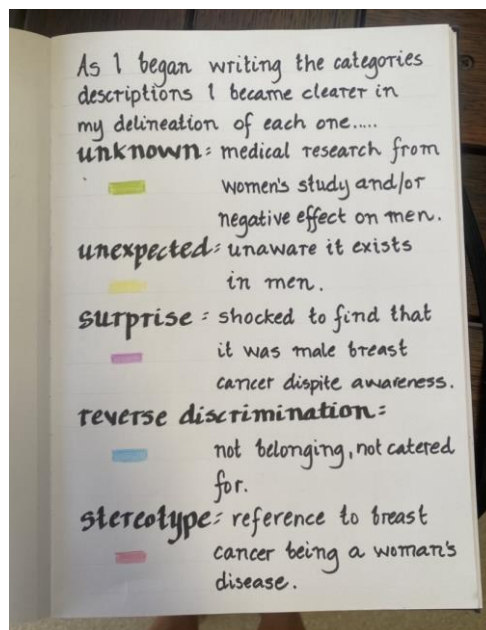 As I began writing the categories
descriptions I became clearer in
my delineation of each one.....
unknown: medical research from
women's study and/or
negative effect on men.
unexpected: unaware it exists
in men.
surprise: shocked to find that
it was male breast
cancer dispite awareness.
reverse discrimination:
not belonging, not catered
for.
stereotype: reference to breast
cancer being a woman's
disease.